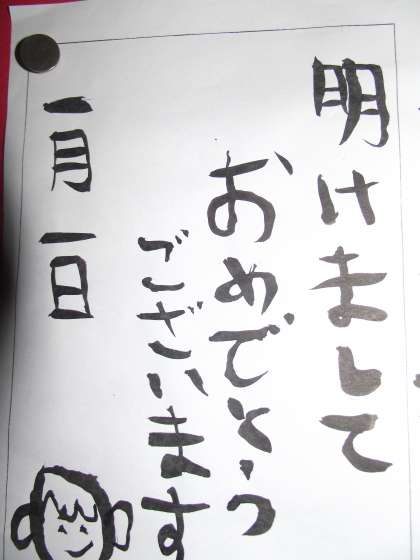 明けまして
おめでとう
ございます
一月一日